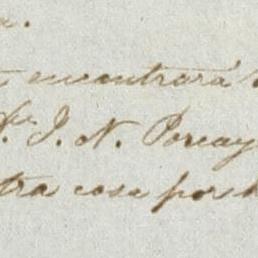 a.
encontrará
J. N. Porcay
tra cosa por